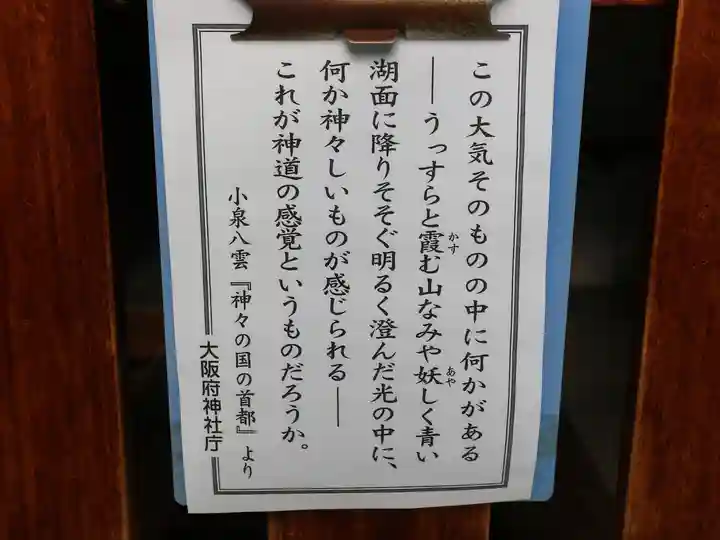 この大気そのものの中に何かがある
──うっすらと霞む山なみや妖しく青い
湖面に降りそそぐ明るく澄んだ光の中に、
何か神々しいものが感じられる──
これが神道の感覚というものだろうか。
小泉八雲『神々の国の首都』より
大阪府神社庁
かす
あや